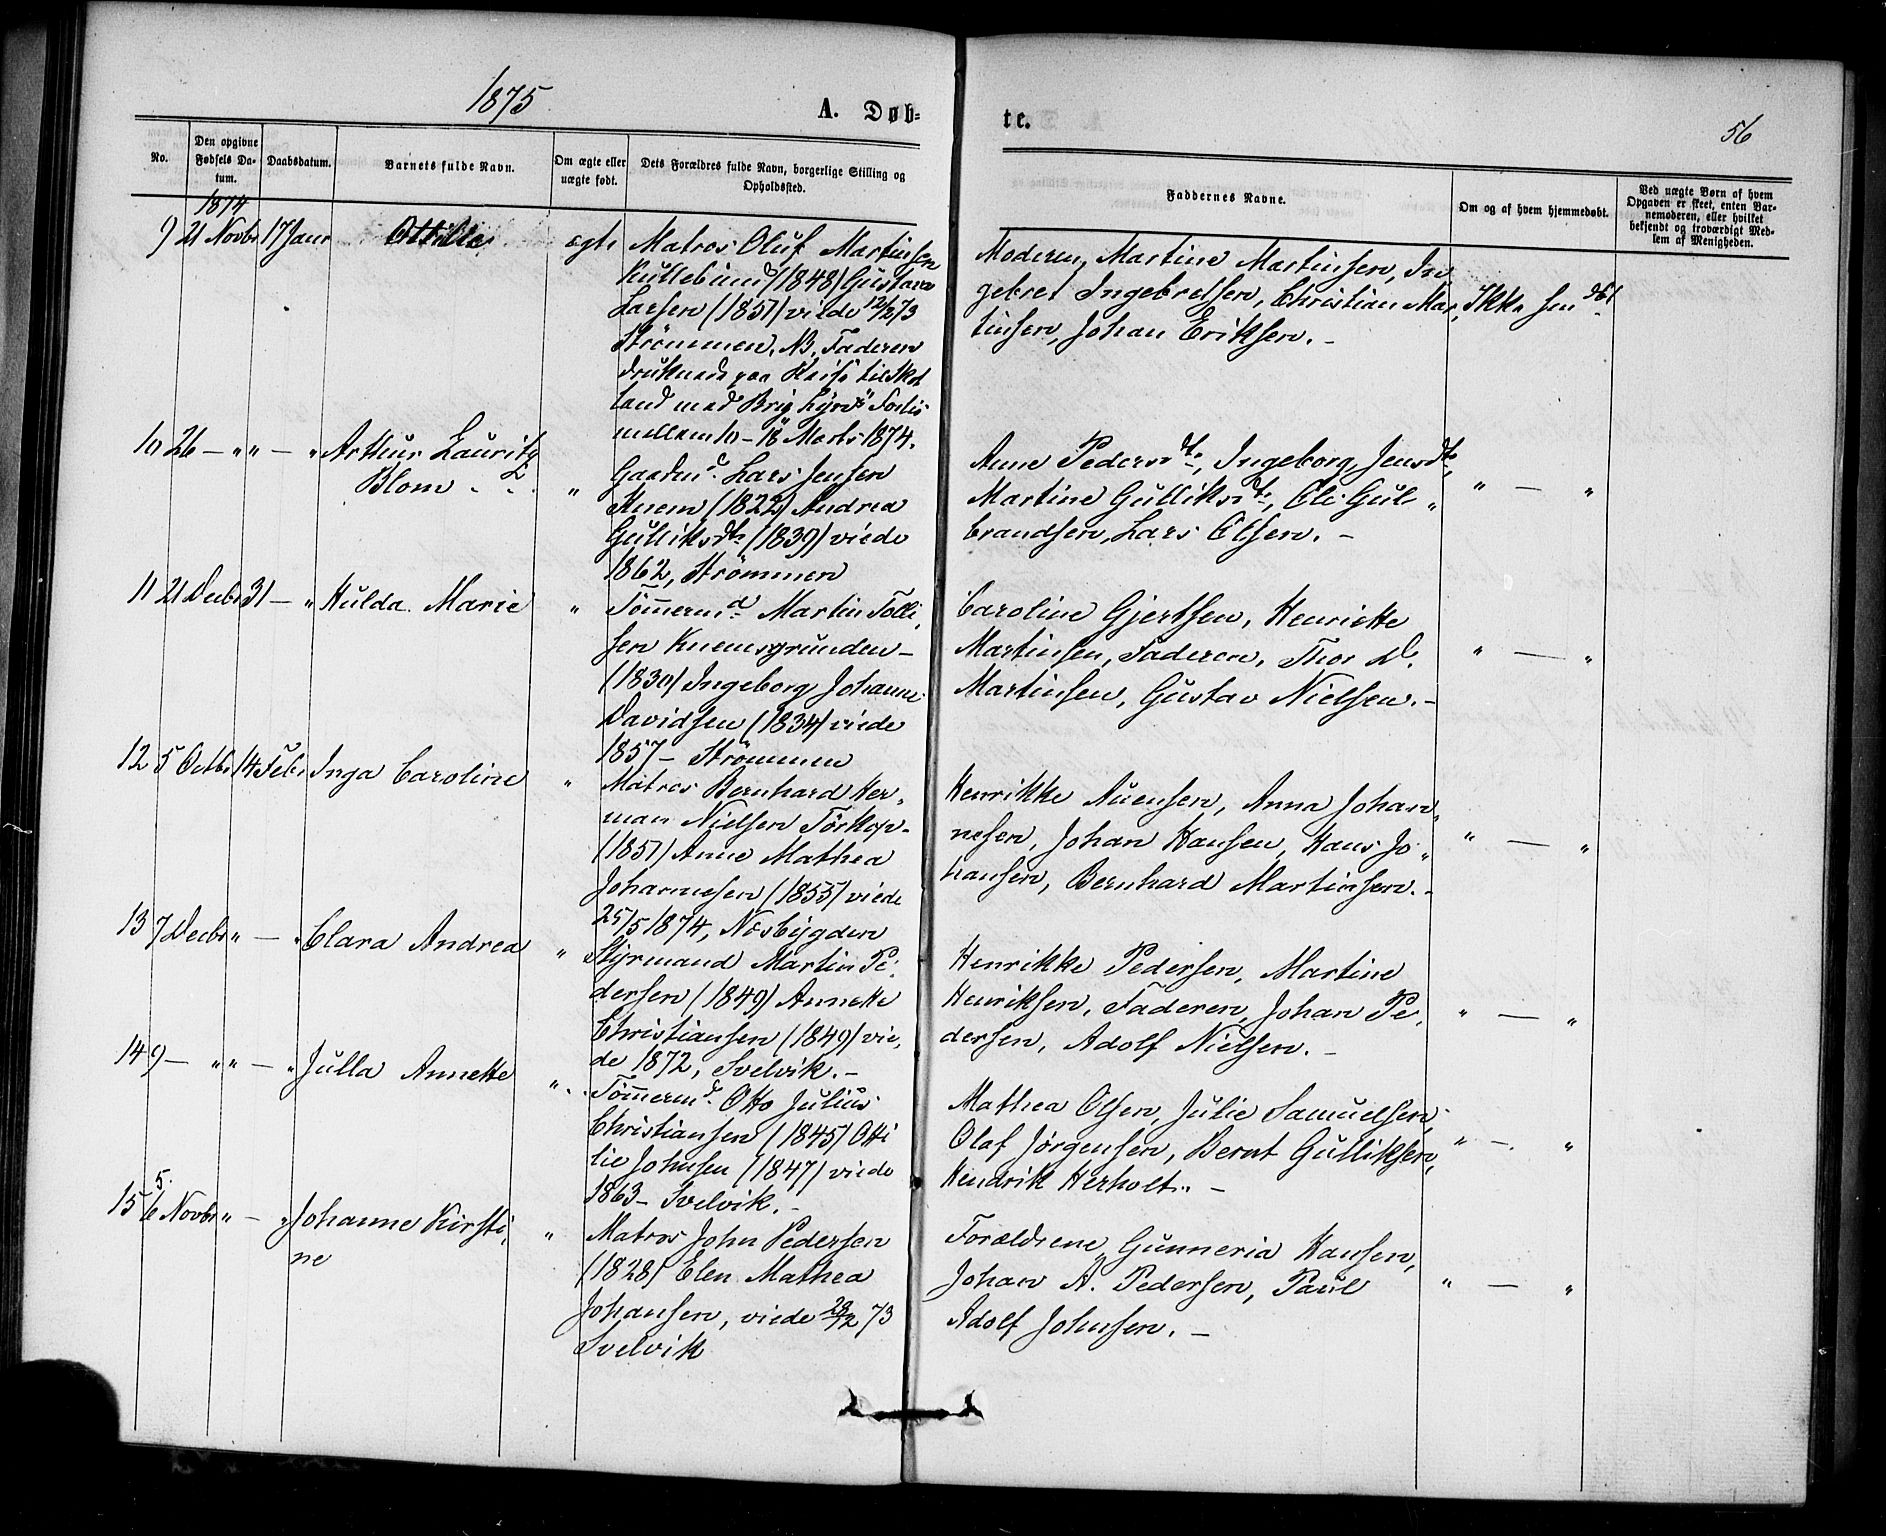 1875
A. Døb-
te.
56
No.
Den opgivne Fødsels Datum.
Daabsdatum.
Barnets fulde Navn.
Om ægte eller uægte født.
Dets Forældres fulde Navn, borgerlige Stilling og Opholdssted.
Faddernes Navne.
Om og af hvem hjemmedøbt.
Ved uægte Børn af hvem Opgaven er skeet, enten Barnemoderen, eller hvilket bekjendt og troværdigt Medlem af Menigheden.
1874
9 21 Novbr 17 Janr Ottilie ægte
Matros Oluf Martinsen
Kullebund (1848) Gustava
Larsen (1851) viede 12/2 73
Strømmen. NB. Faderen
druknede paa Reise til Skot
land med Brig "Fortis
mellem 10-18 Marts 1874.
Moderen, Martine Martinsen, In
gebret Ingebretsen, Christian Mar
tinsen, Johan Eriksen. -
Ikke hjdbt
10 26 - " " - " Arthur Lauritz
Blom "
Gaardmd. Lars Jensen
Knem (1822) Andrea
Gulliksdtr (1839) viede
1862, Strømmen
Anne Pedersdtr, Ingeborg Jensdtr,
Martine Gulliksdtr, Ole Gul-
brandsen, Lars Olsen. -
" — "
11 21 Decbr 31 - " Hulda Marie "
Tömermd Martin Tolli
sen Knemsgrunden -
(1830) Ingeborg Johanne
Davidsen (1834) viede
1857 - Strømmen
Caroline Gjertsen, Henriette
Martinsen, Faderen, Thor
Martinsen, Gustav Nielsen. -
" — "
12 5 Octbr 14 Febr Inga Caroline "
Matros Bernhard Her-
man Nielsen Törkop-
(1851) Anne Mathea
Johannesen (1855) viede
25/5 1874, Nesbygden
Henrikke Auensen, Anna Johan
nesen, Johan Hansen, Hans Jo
hansen, Bernhard Martinsen. -
" — "
13 7 Decbr " - " Clara Andrea "
Styrmand Martin Pe
dersen (1849) Annette
Christiansen (1849) vie
de 1872, Svelvik. -
Henrikke Pedersen, Martine
Henriksen, Faderen, Johan Pe
dersen, Adolf Nielsen. -
" — "
14 9 - " " - " Julla Annette "
Tömermd. Otto Julius
Christiansen (1845) Otti
lie Johnsen (1847) viede
1863 - Svelvik. -
Mathea Olsen, Julie Samuelsen,
Olaf Jørgensen, Bernt Gulliksen,
Hendrik Herholt. -
" - "
5.
15 6 Novbr " - " Johanne Kirsti
ne "
Matros John Pedersen
(1828) Elen Mathea
Johansen, viede 23/2 73
Svelvik
Forældrene, Gunneria Hansen,
Johan A. Pedersen, Paul
Adolf Johnsen. -
" — "